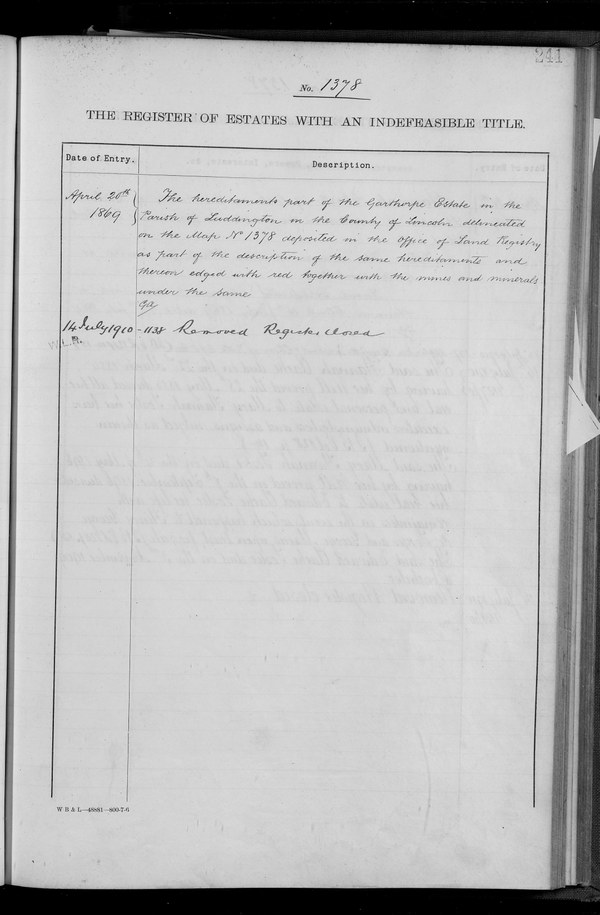 241
No. 1378
THE REGISTER OF ESTATES WITH AN INDEFEASIBLE TITLE.
Date of Entry.
Description.
April 20th
1869
The hereditaments part of the Garthorpe Estate in the
Parish of Luddington in the County of Lincoln delineated
on the Map No 1378 deposited in the office of Land Registry
as part of the description of the same hereditaments and
thereon edged with red together with the mines and minerals
under the same
14 July 1910 - 1138 Removed Register closed
W B & L—48881—800-7-6